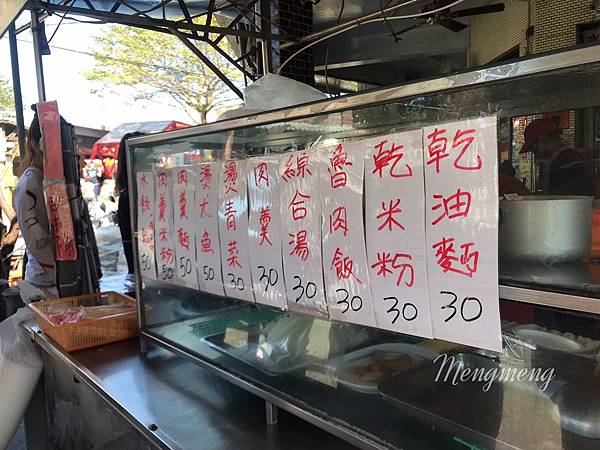 水餃
50
肉羹米粉
50
肉羹麵
50
燙尤魚
50
燙青菜
30
肉羹
30
綜合湯
30
魯肉飯
30
乾米粉
30
乾油麵
30
Mengmeng